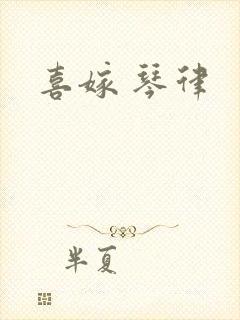 喜嫁琴律
半夏